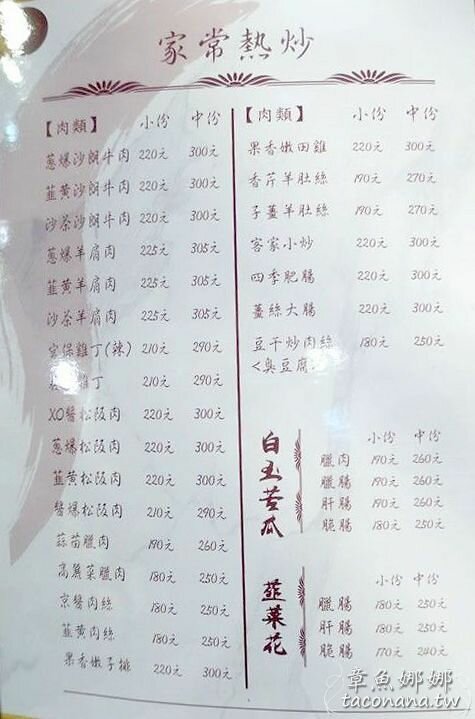 家常熱炒
【肉類】 小份 中份
蔥爆沙朗牛肉 220元 300元
韮黃沙朗牛肉 220元 300元
沙茶沙朗牛肉 220元 300元
蔥爆羊肩肉 225元 305元
韮黃羊肩肉 225元 305元
沙茶羊肩肉 225元 305元
宮保雞丁(辣) 210元 290元
雞丁 210元 290元
XO醬松阪肉 220元 300元
蔥爆松阪肉 220元 300元
韮黃松阪肉 220元 300元
醬爆松阪肉 210元 290元
蒜苗臘肉 190元 260元
高麗菜臘肉 180元 250元
京醬肉絲 180元 250元
韮黃肉絲 180元 250元
果香嫩子排 220元 300元
【肉類】 小份 中份
果香嫩田雞 220元 300元
香芹羊肚絲 190元 270元
子薑羊肚絲 190元 270元
客家小炒 220元 300元
四季肥腸 220元 300元
薑絲大腸 220元 300元
豆干炒肉絲 180元 250元
<臭豆腐>
白玉苦瓜
小份 中份
臘肉 190元 260元
臘腸 190元 260元
肝腸 190元 260元
脆腸 180元 250元
韮菜花
小份 中份
臘腸 180元 250元
肝腸 180元 250元
脆腸 170元 240元
章魚娜娜
taconana.tw